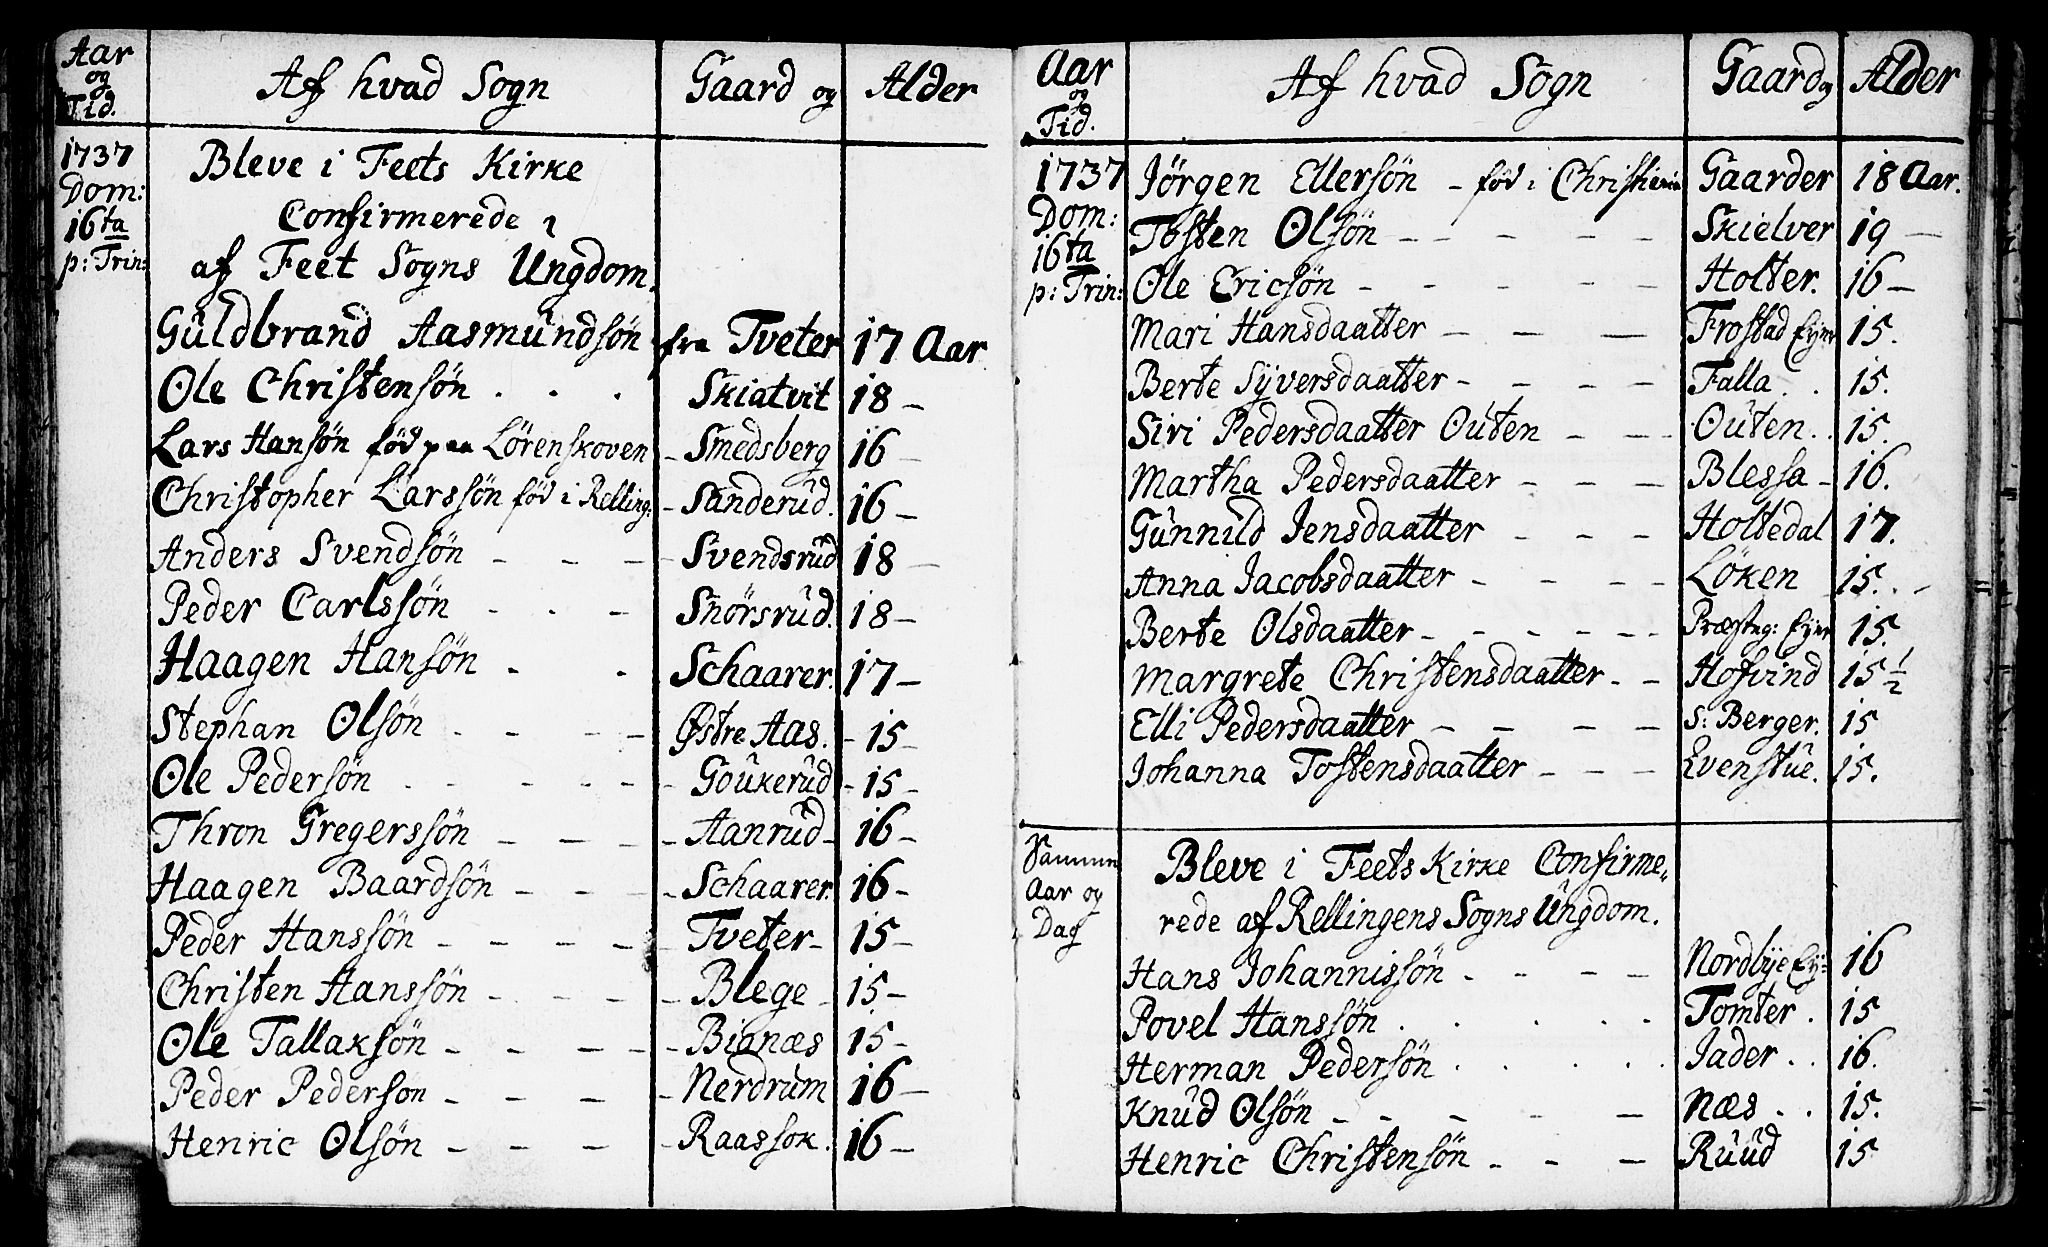 Aar og Tid. Af hvad Sogn Gaard og Alder
1737 Bleve i Feets Kirke
Dom: Confirmerede
16ta af Feet Sogns Ungdom.
p: Trin:
Guldbrand Aasmundsøn fra Tveter 17 Aar
Ole Christensøn . . . Skiatvit 18 –
Lars Hansøn fød paa Lörenskoven – Smedsberg 16 –
Christopher Larssøn fød i Relling: – Sanderud. 16 –
Anders Svendsøn – – – Svendsrud 18 –
Peder Carlssøn – – – Snörsrud. 18 –
Haagen Hansøn . . Schaarer. 17 –
Stephan Olsøn – – – – Østre Aas. – 15 –
Ole Pedersøn – – – – – Goukerud – 15 –
Thron Gregerssøn – – – – Aanrud – 16 –
Haagen Baardsøn – – – – Schaarer. 16 –
Peder Hanssøn – – – – Tveter – 15 –
Christen Hanssøn – – – – – Blege – 15 –
Ole Tallaksøn – – – – – Bianæs 15 –
Peder Pederson – – – – Nerdrum 16 –
Henric Olsøn – – – – Raassok. 16 –
Aar og Tid. Af hvad Sogn Gaard og Alder
1737 Jörgen Ellersøn – fød i Christiania Gaarder 18 Aar.
Dom: Tosten Olsøn – – – – – Skielver 19 –
16ta
p: Trin: Ole Ericsøn – – – – – Holter. 16 –
Mari Hansdaatter – – – Frostad Eyer 15.
Berte Syversdaatter – – – – Falla . . 15.
Siri Pedersdaatter Outen – – – Outen. . 15.
Martha Pedersdaatter – – – Blessa – 16.
Gunnild Jensdaatter – – – Holtedal 17.
Anna Jacobsdaatter – – – – Löken 15. . –
Berte Olsdaatter – – – – – Præsteg: Eyer 15.
Margrete Christensdaatter – – Hofvind 15 1/2
Elli Pedersdaatter – – – – S: Berger. 15
Johanna Tostensdaatter – – – Evenstue. 15.
Samme Aar og Dag Bleve i Feets Kirke Confirme„
rede af Rellingens Sogns Ungdom.
Hans Johannissøn . – – – Nordbye Ey: 16
Povel Hanssøn . . . . . Tomter . 15
Herman Pedersøn . . . . . Jader . . 16.
Knud Olsøn – – – – – Næs . . 15.
Henric Christensøn – – – Ruud 15